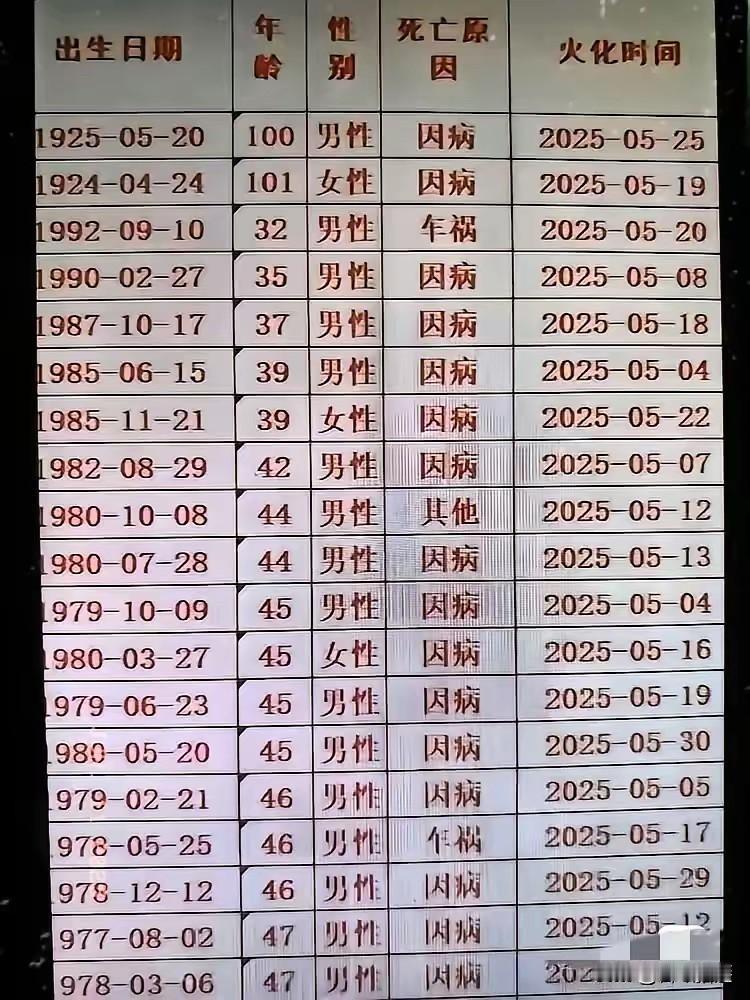 出生日期 年龄 性别 死亡原因 火化时间
1925-05-20 100 男性 因病 2025-05-25
1924-04-24 101 女性 因病 2025-05-19
1992-09-10 32 男性 车祸 2025-05-20
1990-02-27 35 男性 因病 2025-05-08
1987-10-17 37 男性 因病 2025-05-18
1985-06-15 39 男性 因病 2025-05-04
1985-11-21 39 女性 因病 2025-05-22
1982-08-29 42 男性 因病 2025-05-07
1980-10-08 44 男性 其他 2025-05-12
1980-07-28 44 男性 因病 2025-05-13
1979-10-09 45 男性 因病 2025-05-04
1980-03-27 45 女性 因病 2025-05-16
1979-06-23 45 男性 因病 2025-05-19
1980-05-20 45 男性 因病 2025-05-30
1979-02-21 46 男性 因病 2025-05-05
978-05-25 46 男性 车祸 2025-05-17
978-12-12 46 男性 因病 2025-05-29
977-08-02 47 男性 因病 2025-05-12
978-03-06 47 男性 因病